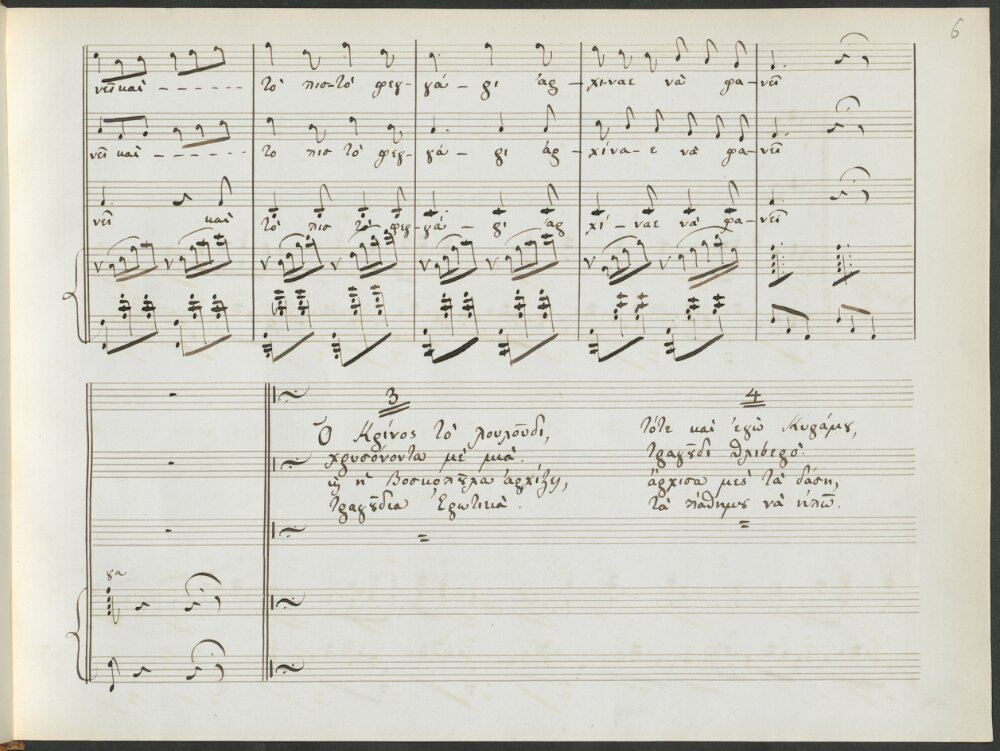 6
νεῖ καὶ - - - - - - τὸ πιστὸ φεγ- γά - ρι ἀρ - χιναε νὰ φα - νεῖ
νεῖ καὶ - - - - - - το πισ τὸ φεγ- γά - ρι ἀρ - χίνα - ε νὰ φα - νεῖ
νεῖ καὶ τὸ πισ τὸ φεγ - γά - ρι ἀρ χί - ναε νὰ φα - νεῖ
3
Ὁ Κρίνος τὸ λουλοῦδι,
χρυσόνοντα μὲ μιὰ.
κ ἡ Βοσκοπȣλα ἀρχίζει,
τραγȣδια Ἐρωτικὰ.
4
τότε καὶ ἐγὼ Κυράμȣ,
τραγȣδι θλιβερὸ.
ἄρχισα μεσ τὰ δάση,
τὰ πάθημȣ νὰ εἰπῶ.